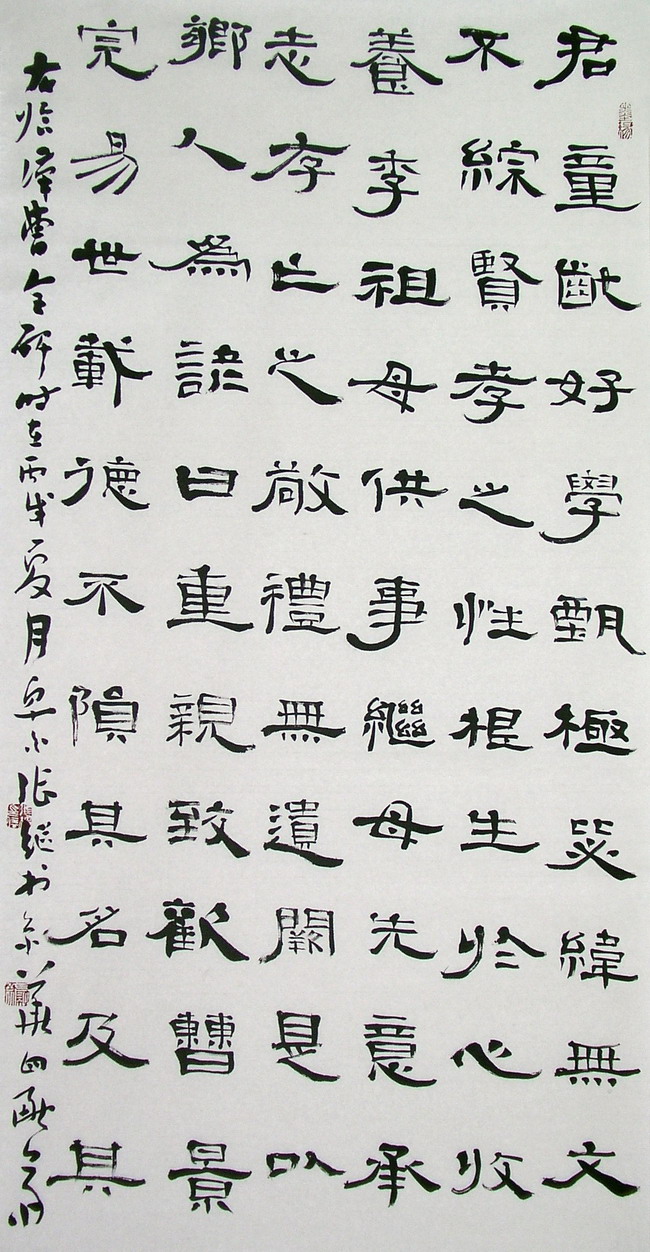 君童齔好學甄極毖緯無文
不綜賢孝之性根生於心收
養季祖母供事繼母先意承
志存亡之敬禮無遺闕是以
鄉人為諺曰重親致歡曹景
完易世載德不隕其名及其
右临漢曹全碑时在丙戌夏月张继书京華